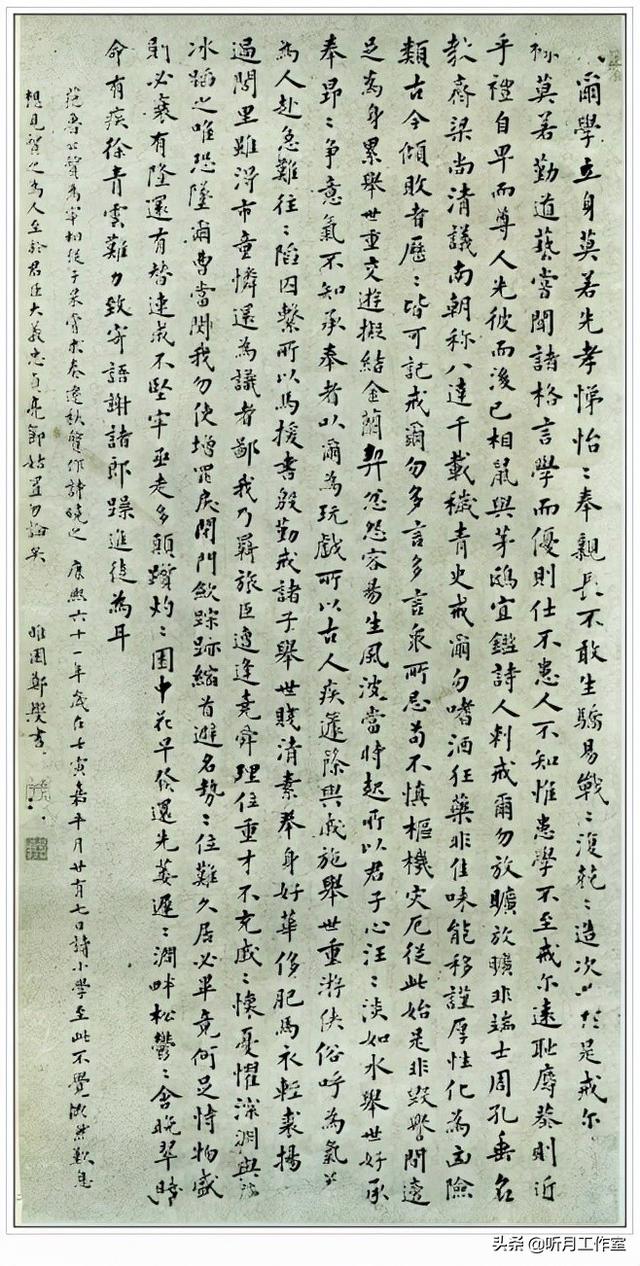 爾學立身莫若先孝悌怡〻奉親長不敢生驕易戰〻復兢〻造次必於是戒尔
祿莫若勤道藝嘗聞諸格言學而優則仕不患人不知惟患學不至戒尔遠恥辱恭則近
乎禮自卑而尊人先彼而後己相鼠與茅鴟宜鑑詩人刺戒爾勿放曠放曠非端士周孔垂名
教齊梁尚清議南朝称八達千載穢青史戒爾勿嗜酒狂藥非佳味能移謹厚性化為凶險
類古今傾敗者歷〻皆可記戒爾勿多言多言衆所忌苟不慎樞機灾厄從此始是非毀譽間適
足為身累舉世重交遊擬結金蘭契忿怨容易生風波當時起所以君子心汪〻淡如水舉世好承
奉昂〻争意氣不知承奉者以爾為玩戲所以古人疾蘧除與戚施舉世重游俠俗呼為氣义
為人赴急難往〻陷囚繫所以馬援書殷勤戒諸子舉世賤清素奉身好華侈肥馬衣輕裘揚
過閭里雖得市童憐還為識者鄙我乃羈旅臣遭逢堯舜理位重才不充戚〻懷憂懼深淵與薄
冰蹈之唯恐墜爾曹當閔我勿使增罪戾閉門歛踪跡縮首避名勢〻位難久居必畢竟何足恃物盛
則必衰有隆還有替速成不堅牢亟走多顛躓灼〻園中花早發還先萎遲〻澗畔松鬱〻含晚翠賦
命有疾徐青雲難力致寄語謝諸郎躁進徒為耳
范魯公質為宰相從子杲嘗求奏遷秩質作詩曉之 康熙六十一年歲在壬寅嘉平月廿有七日讀小學至此不覺慨然歎息
想見質之為人至於君臣大義忠貞亮節姑置勿論矣 鄭燮書
头条 @听月工作室